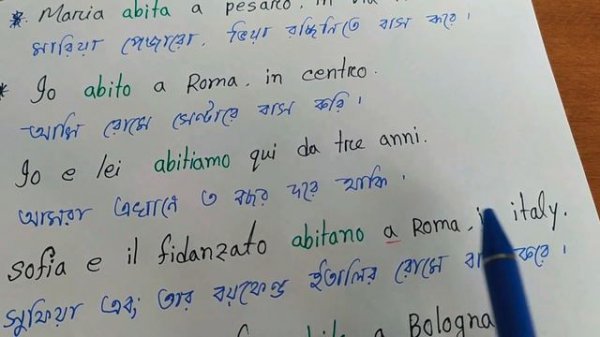 * Marcia abita a pesaro, in via
মারিয়া পেজারো, ভিয়া বাস করে।
* Io abito a Roma, in centro.
আমি রোমে সেন্টারে বাস করি।
Io e lei abitiamo qui da tre anni.
আমরা এখানে ৩ বছর ধরে থাকি।
sofia e il fidanzato abitano a Roma, in italy.
সুফিয়া এবং তার বয়ফ্রেন্ড ইতালির রোমে করে।
a Bologna